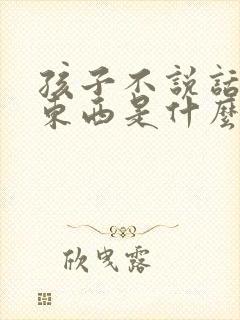 孩子不説話
東西是什麼
欣曳露